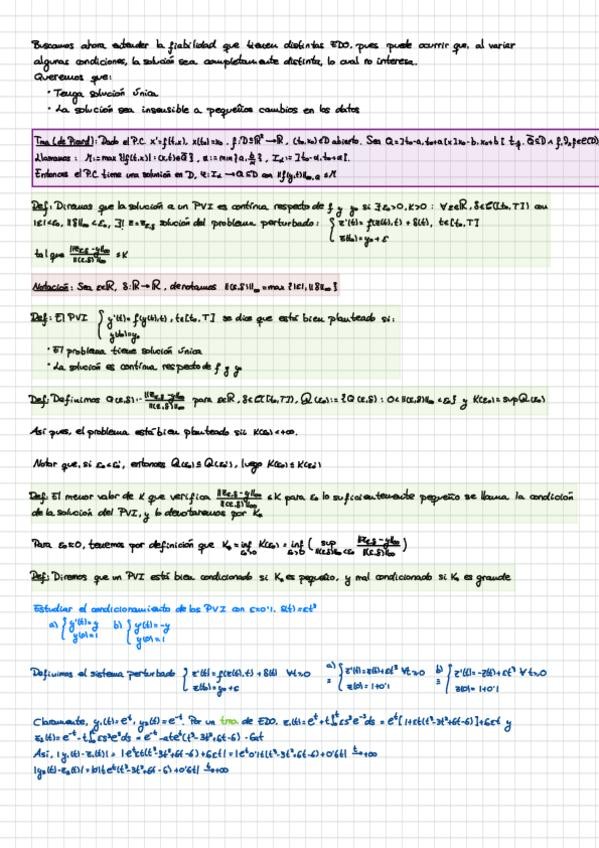 Buscamos ahora extender la fiabilidad que tienen distintas EDO, pues puede ocurrir que, al variar
algunas condiciones, la solución sea completamente distinta, lo cual no interesa.
Queremos que:
· Tenga solución única
· La solución sea insensible a pequeños cambios en los datos
Tma (de Picard): Dado el P.C. x'=f(t,x), x(t₀)=x₀, f:D⊆R²→R, (t₀,x₀)∈D abierto. Sea Q=[t₀-a,t₀+a]x[x₀-b,x₀+b]
Llamamos: M:=max{|f(t,x)|:(t,x)∈Q}, α:=min{a, b/M}, Iα:=]t₀-α,t₀+α[.
Entonces el P.C. tiene una solución en D,
Def: Diremos que la solución a un PVI es continua respecto de f y y₀ si ∃ε₀>0, K>0: ∀ε∈R, δ∈C([t₀,T]) con
|ε|<ε₀, ||δ||∞<ε₀, ∃! z=z_ε,δ solución del problema perturbado: { z'(t)=f(z(t),t)+δ(t), t∈[t₀,T]
z(t₀)=y₀+ε
tal que ||z_ε,δ-y||∞ / ||(ε,δ)||∞ ≤K
Notación: Sea ε∈R, δ:R→R, denotamos ||(ε,δ)||∞=max{|ε|,||δ||∞}
Def: El PVI { y'(t)=f(y(t),t), t∈[t₀,T] se dice que está bien planteado si:
y(t₀)=y₀
· El problema tiene solución única
· La solución es continua respecto de f y y₀
Def: Definimos Q(ε,δ):=||z_ε,δ-y||∞ / ||(ε,δ)||∞ para ε∈R, δ∈C([t₀,T]), Q(ε₀):={Q(ε,δ): 0<||(ε,δ)||∞<ε₀} y K(ε₀)=sup Q(ε₀)
Así pues, el problema está bien planteado sii K(ε₀)<+∞.
Notar que, si ε₀<ε₀', entonces Q(ε₀)⊆Q(ε₀'), luego K(ε₀)≤K(ε₀')
Def: El menor valor de K que verifica ||z_ε,δ-y||∞ / ||(ε,δ)||∞ ≤K para ε₀ lo suficientemente pequeño se llama la condición
de la solución del PVI, y lo denotaremos por K₀
Para ε₀≥0, tenemos por definición que K₀=inf K(ε₀)=inf ( sup ||z_ε,δ-y||∞ / ||(ε,δ)||∞ )
Def: Diremos que un PVI está bien condicionado si K₀ es pequeño, y mal condicionado si K₀ es grande
Estudiar el condicionamiento de los PVI con ε=0'1, δ(t)=εt³
a) { y'(t)=y b) { y'(t)=-y
y(0)=1 y(0)=1
Definimos el sistema perturbado { z'(t)=f(z(t),t)+δ(t) ∀t≥0 a) { z'(t)=z(t)+εt³ ∀t≥0 b) { z'(t)=-z(t)+εt³ ∀t≥0
z(t₀)=y₀+ε z(0)=1+0'1 z(0)=1+0'1
Claramente, y₁(t)=eᵗ, y₂(t)=e⁻ᵗ. Por un tma de EDO,
Así, |y₁(t)-z₁(t)|=
|y₂(t)-z₂(t)|=